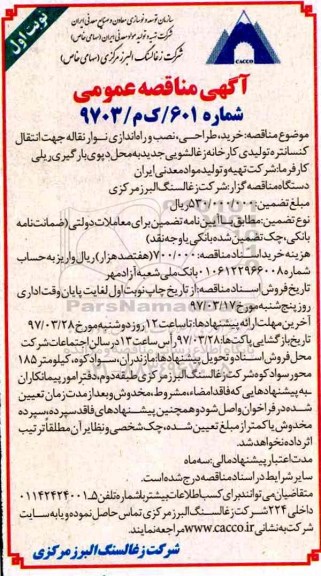 نوبت اول
سازمان توسعه و نوسازی معادن و صنایع معدنی ایران
شرکت تهیه و تولید مواد معدنی ایران (سهامی خاص)
شرکت زغالسنگ البرز مرکزی (سهامی خاص)
CACCO
آگهی مناقصه عمومی
شماره ۶۰۱/ک م/۹۷۰۳
موضوع مناقصه: خرید، طراحی، نصب و راه اندازی نوار نقاله جهت انتقال
کنسانتره تولیدی کارخانه زغالشویی جدید به محل دپوی بارگیری ریلی
کارفرما: شرکت تهیه و تولید مواد معدنی ایران
دستگاه مناقصه گزار: شرکت زغالسنگ البرز مرکزی
مبلغ تضمین: ۵۳۰/۰۰۰/۰۰۰ ریال
نوع تضمین: مطابق با آیین نامه تضمین برای معاملات دولتی (ضمانت نامه
بانکی، چک تضمین شده بانکی یا وجه نقد)
هزینه خرید اسناد مناقصه: ۷۰۰/۰۰۰ (هفتصد هزار) ریال واریز به حساب
شماره ۰۱۰۶۱۲۲۹۶۶۰۰۸ بانک ملی شعبه آزادمهر
تاریخ فروش اسناد مناقصه: از تاریخ چاپ نوبت اول لغایت پایان وقت اداری
روز پنج شنبه مورخ ۹۷/۰۳/۱۷
آخرین مهلت ارائه پیشنهادها: تا ساعت ۱۲ روز دوشنبه مورخ ۹۷/۰۳/۲۸
تاریخ بازگشایی پاکت ها: ۹۷/۰۳/۲۸ رأس ساعت ۱۳ در سالن اجتماعات شرکت
محل فروش اسناد و تحویل پیشنهادها: مازندران، سوادکوه، کیلومتر ۱۸۵
محور سوادکوه شرکت زغالسنگ البرز مرکزی طبقه دوم، دفتر امور پیمانکاران
به پیشنهادهایی که فاقد امضاء، مشروط، مخدوش و بعد از مدت زمان تعیین
شده در فراخوان واصل شود و همچنین پیشنهادهای فاقد سپرده، سپرده
مخدوش یا کمتر از مبلغ تعیین شده، چک شخصی و نظایر آن مطلقاً ترتیب
اثر داده نخواهد شد.
مدت اعتبار پیشنهاد مالی: سه ماه
سایر شرایط در اسناد مناقصه درج شده است.
متقاضیان می توانند برای کسب اطلاعات بیشتر با شماره تلفن ۵-۰۱۱۴۲۴۲۴۰۰۱
داخلی ۲۲۴ شرکت زغالسنگ البرز مرکزی تماس حاصل نموده و یا به سایت
شرکت به نشانی www.cacco.ir مراجعه نمایند.
شرکت زغالسنگ البرز مرکزی